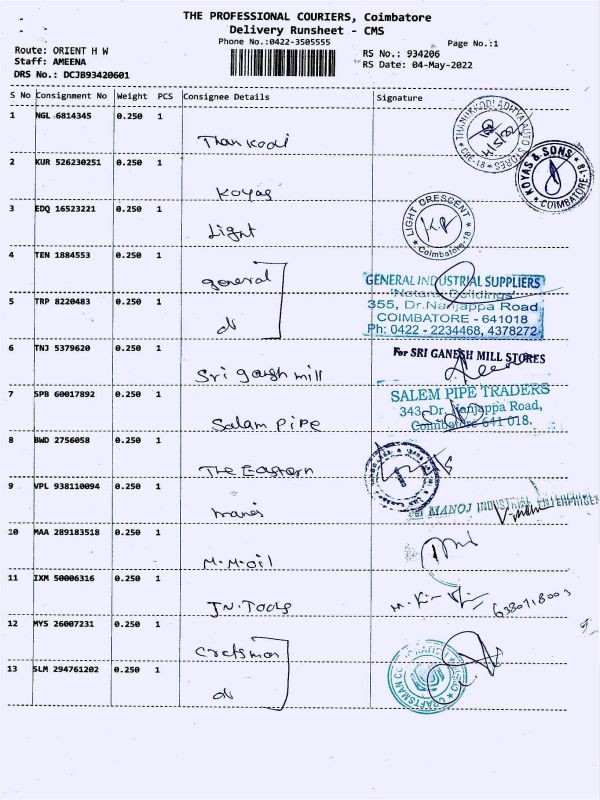 THE PROFESSIONAL COURIERS, Coimbatore
Delivery Runsheet - CMS
Phone No.:0422-3505555
Page No.:1
Route: ORIENT H W
RS No.: 934206
Staff: AMEENA
RS Date: 04-May-2022
DRS No.: DCJB93420601
S No Consignment No Weight PCS Consignee Details Signature
1 NGL 6814345 0.250 1
Thankodi
THANIKKODI ADITYA AUTO STORES CBE-18
2 KUR 526230251 0.250 1
Koyas
KOYAS & SONS COIMBATORE-18
3 EDQ 16523221 0.250 1
Light
LIGHT CRESCENT Coimbatore-18
4 TEN 1884553 0.250 1
general
GENERAL INDUSTRIAL SUPPLIERS
355, Dr.Nanjappa Road
COIMBATORE - 641018
Ph: 0422 - 2234468, 4378272
5 TRP 8220483 0.250 1
6 TNJ 5379620 0.250 1
Sri gansh mill
For SRI GANESH MILL STORES
7 SPB 60017892 0.250 1
Salam Pipe
SALEM PIPE TRADERS
343, Dr. Nanjappa Road,
Coimbatore 641 018.
8 BWD 2756058 0.250 1
The Eastern
9 VPL 938110094 0.250 1
SRI MANOJ INDUSTRIAL ENTERPRISES
10 MAA 289183518 0.250 1
M.M.oil
11 IXM 50006316 0.250 1
JN.Tools
12 MYS 26007231 0.250 1
Craftsman
13 SLM 294761202 0.250 1